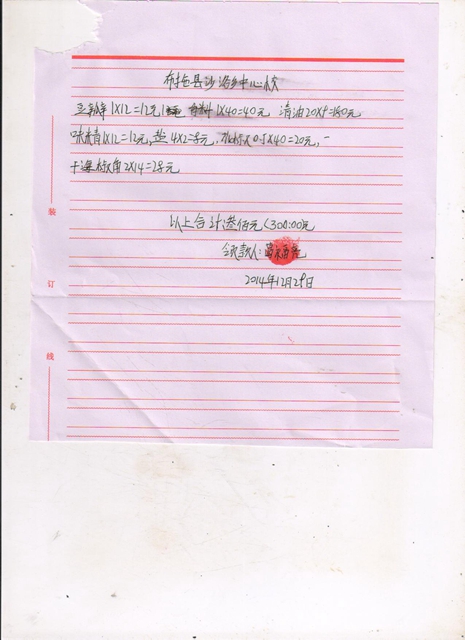 布拖县沙洛乡中心校
1X12=12元 1X40=40元 清油20X9=180元
味精1X12=12元, 盐4X2=8元, 0.5X40=20元,
干海椒角2X14=28元
以上合计叁佰元(300.00元
领款人:
2014年12月29日
装
订
线